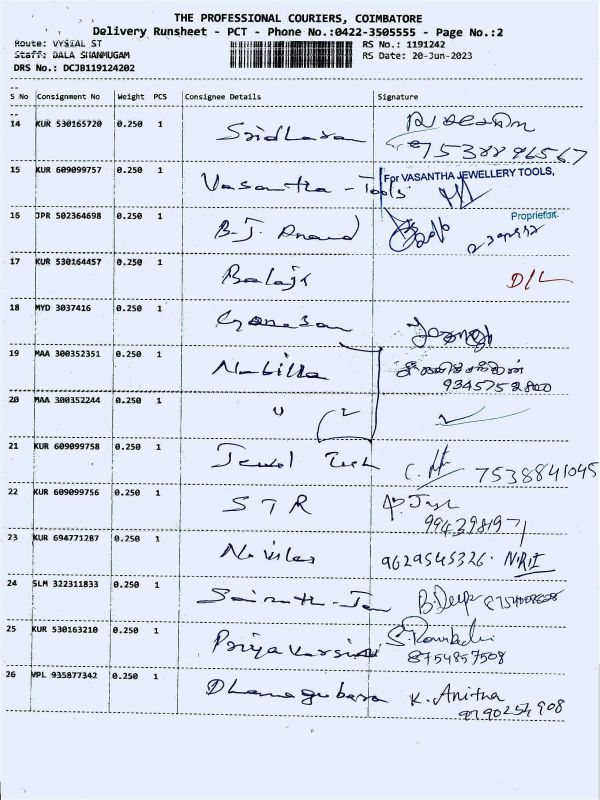 THE PROFESSIONAL COURIERS, COIMBATORE
Delivery Runsheet - PCT - Phone No.:0422-3505555 - Page No.:2
Route: VYSIAL ST
RS No.: 1191242
Staff: BALA SHANMUGAM
RS Date: 20-Jun-2023
DRS No.: DCJB119124202
S No Consignment No Weight PCS Consignee Details Signature
14 KUR 530165720 0.250 1 Sridharan
7538896567
15 KUR 609099757 0.250 1 Vasantha - Tools For VASANTHA JEWELLERY TOOLS,
Proprietor.
16 JPR 502364698 0.250 1 B.J. Anand
17 KUR 530164457 0.250 1 Balaji D/L
18 MYD 3037416 0.250 1 Ganesan
19 MAA 300352351 0.250 1
20 MAA 300352244 0.250 1 " 2
21 KUR 609099758 0.250 1 Jewel Tech 7538841045
22 KUR 609099756 0.250 1 STR
23 KUR 694771287 0.250 1 9629545326.
24 SLM 322311833 0.250 1 B.Deepa
25 KUR 530163210 0.250 1 Priyavarsini
8754857508
26 VPL 935877342 0.250 1 Dhanagubara K. Anitha
9790254908